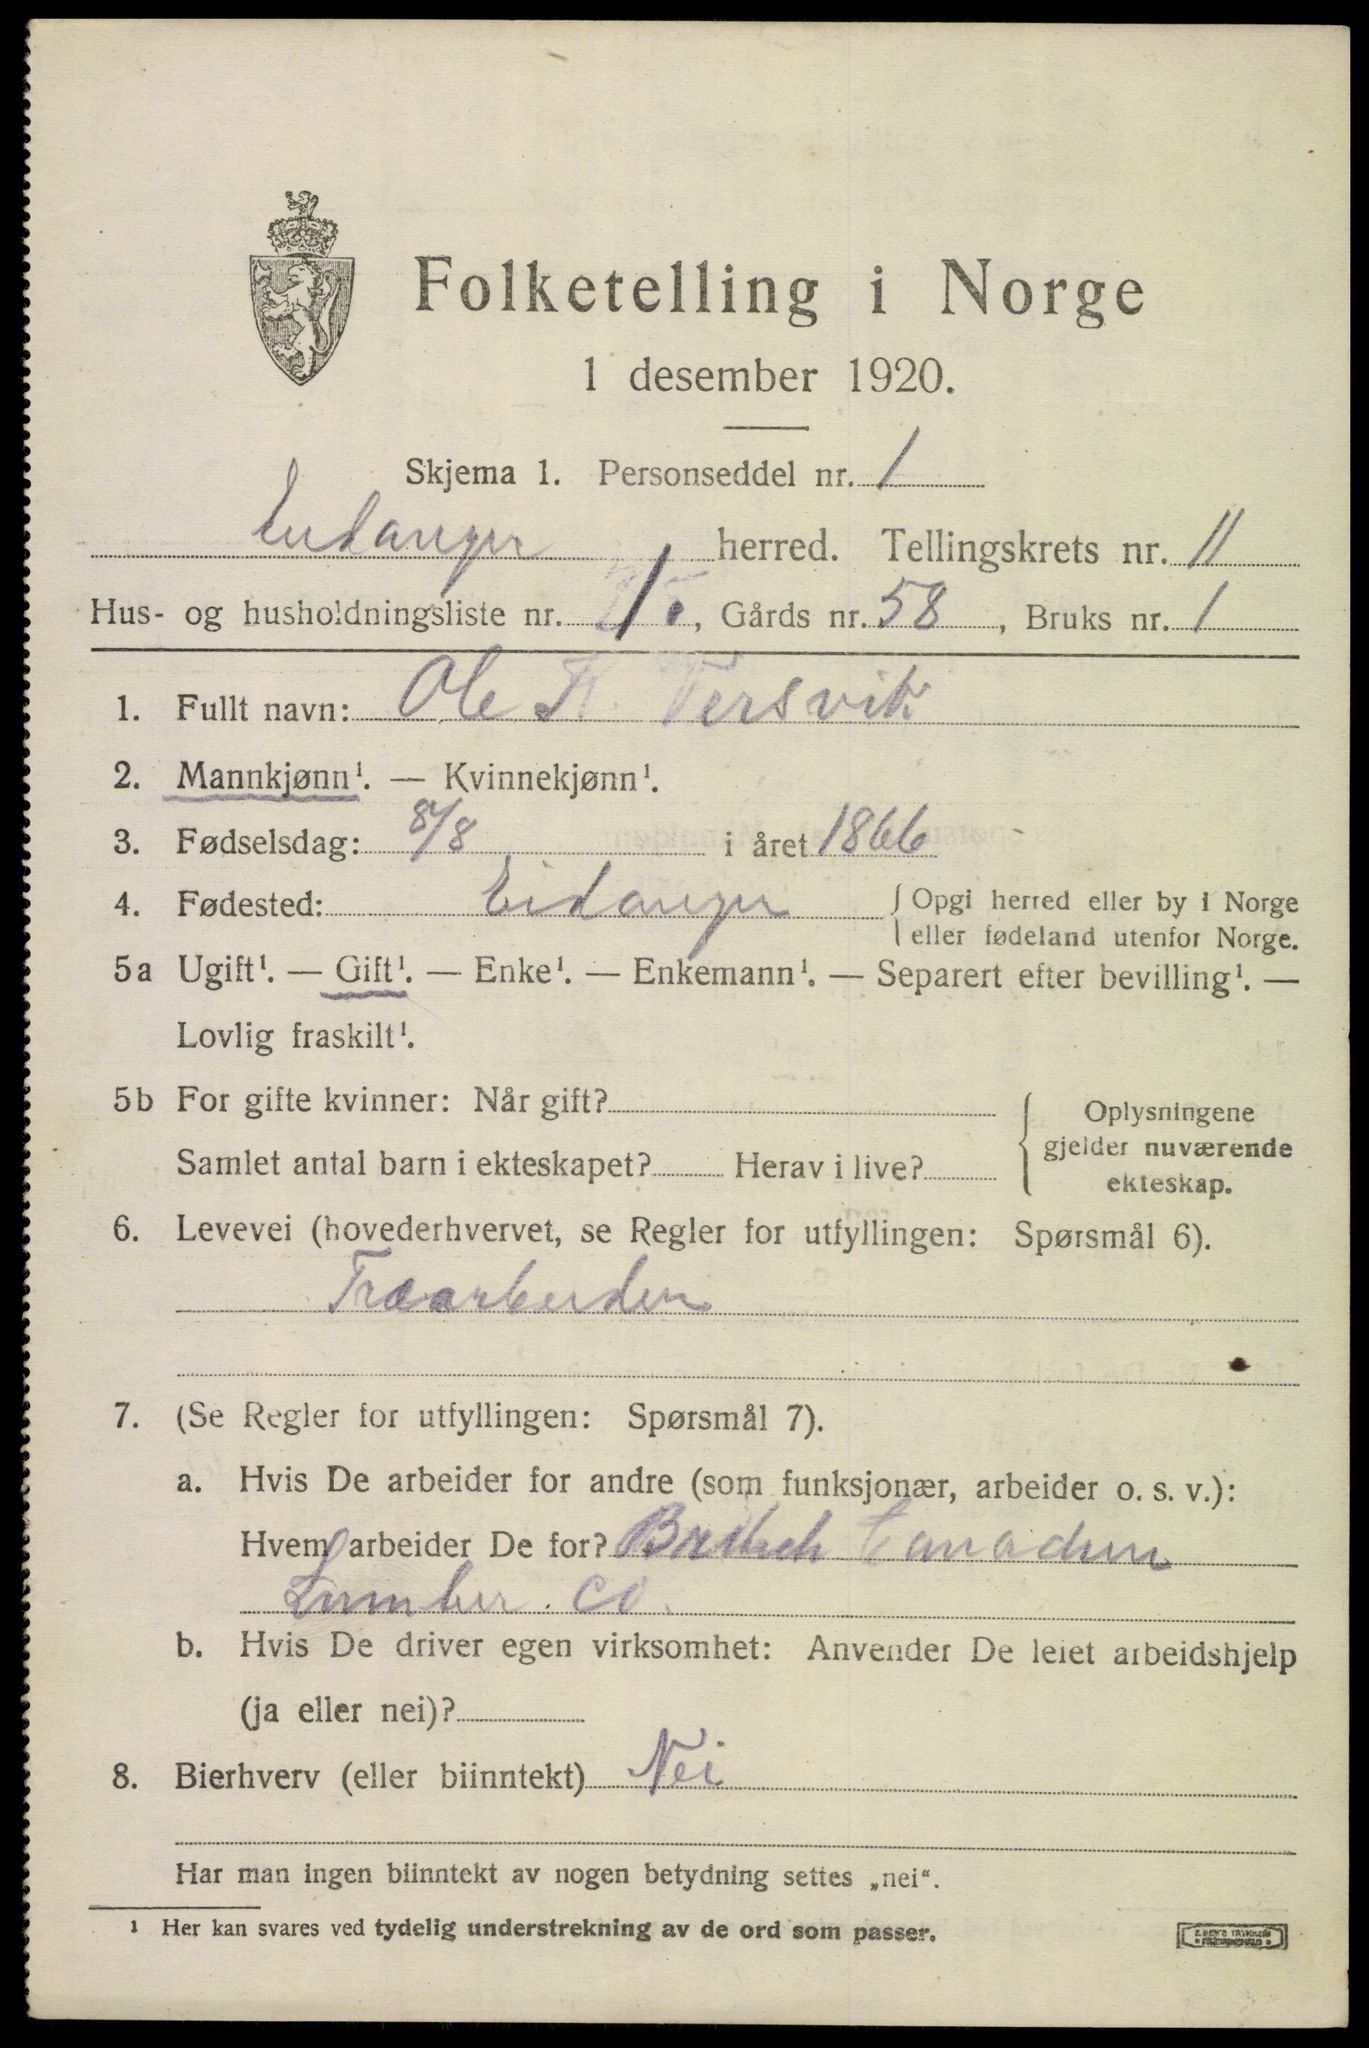 Folketelling i Norge
1 desember 1920.
Skjema 1. Personseddel nr. 1
Eidanger herred. Tellingskrets nr. 11
Hus- og husholdningsliste nr. 1, Gårds nr. 58, Bruks nr. 1
1. Fullt navn: Ole K. Versvik
2. Mannkjønn¹. — Kvinnekjønn¹.
3. Fødselsdag: 8/8 i året 1866
4. Fødested: Eidanger { Opgi herred eller by i Norge
eller fødeland utenfor Norge.
5a Ugift¹. — Gift¹. — Enke¹. — Enkemann¹. — Separert efter bevilling¹. —
Lovlig fraskilt¹.
5b For gifte kvinner: Når gift?
Samlet antal barn i ekteskapet? Herav i live?
{ Oplysningene
gjelder nuværende
ekteskap.
6. Levevei (hovederhvervet, se Regler for utfyllingen: Spørsmål 6).
Træarbeider
7. (Se Regler for utfyllingen: Spørsmål 7).
a. Hvis De arbeider for andre (som funksjonær, arbeider o. s. v.):
Hvem arbeider De for? British Canadien
Lumber. Co.
b. Hvis De driver egen virksomhet: Anvender De leiet arbeidshjelp
(ja eller nei)?
8. Bierhverv (eller biinntekt) Nei
Har man ingen biinntekt av nogen betydning settes „nei“.
¹ Her kan svares ved tydelig understrekning av de ord som passer.